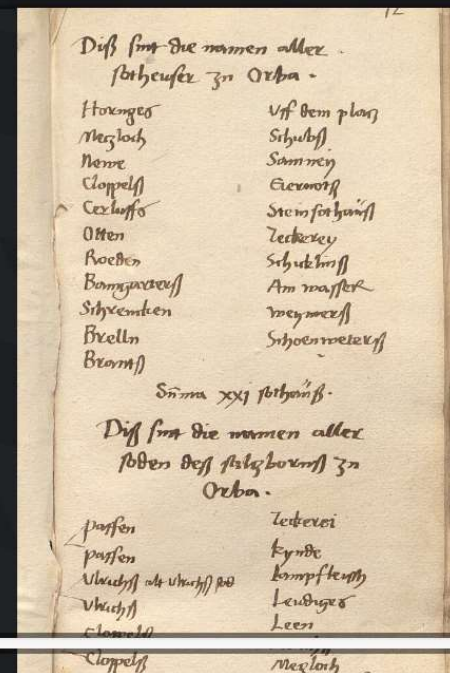 12
Diß sint die namen aller
sotheuser zu Orba.
Hornges
Metzloch
Newe
Cloppelß
Cerluffs
Otten
Roeden
Bomgarterß
Schrencken
Brelln
Brantß
Vff dem platz
Schubß
Samney
Steinsothauß
Zeckerey
Am wasser
weymerß
Schoenweterß
Suma xxj sothauß.
Diß sint die namen aller
soden deß saltzbornß zu
Orba.
passen
passen
Vlrichß alt vlrichß sod
Vlrichß
Cloppelß
Cloppelß
Zeckerei
kynde
kampfleisch
Leudiges
Leen
Metzloch